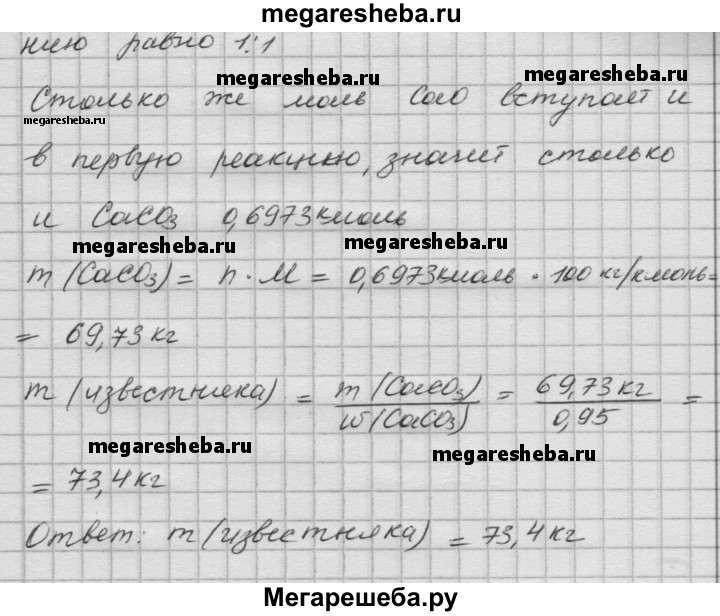 megaresheba.ru
нию равно 1:1
megaresheba.ru megaresheba.ru
Столько же моль CaO вступает и
megaresheba.ru
в первую реакцию, значит столько
и CaCO3 0,6973 кмоль
megaresheba.ru megaresheba.ru
m (CaCO3) = n · M = 0,6973 кмоль · 100 кг/кмоль =
= 69,73 кг
m (известняка) = m (CaCO3) / W (CaCO3) = 69,73 кг / 0,95 =
megaresheba.ru megaresheba.ru
= 73,4 кг
Ответ: m (известняка) = 73,4 кг
Мегарешеба.ру